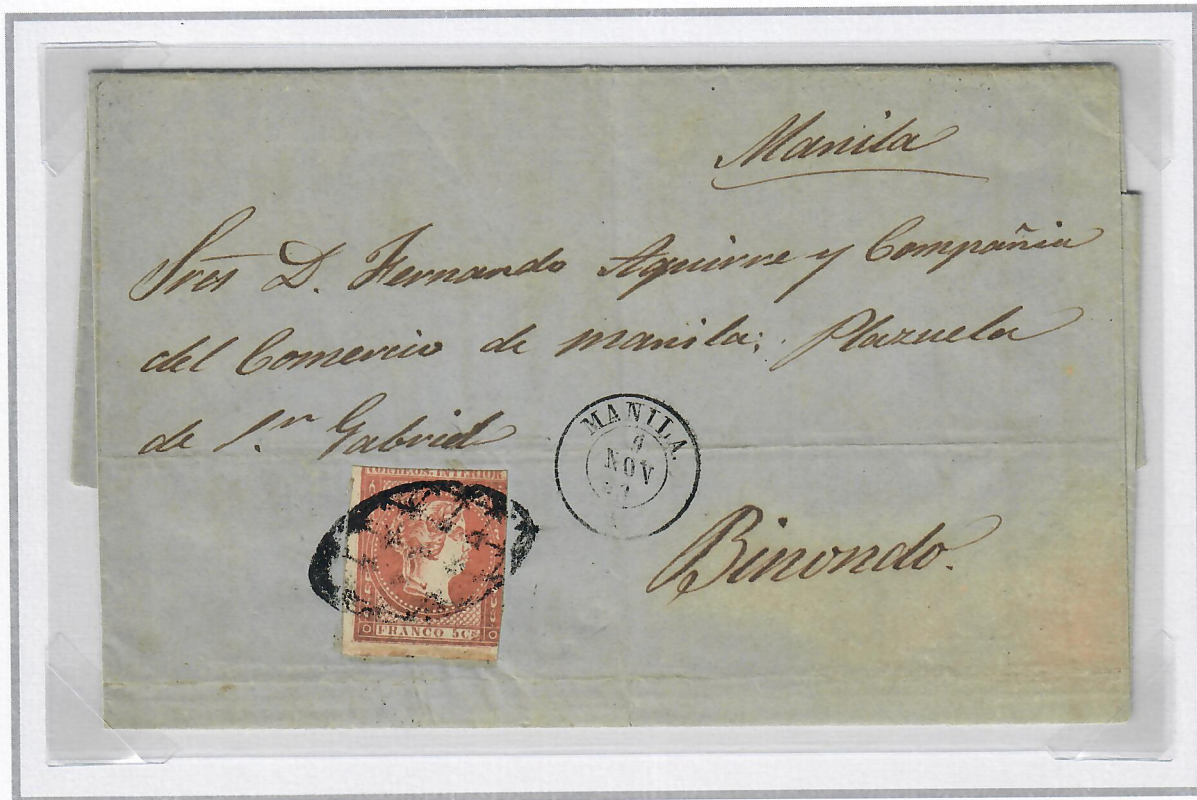 Manila
Sres D. Fernando Aguirre y Compañia
del Comercio de Manila; Plazuela
de Sn Gabriel
MANILA.
NOV
CORREOS. INTERIOR
FRANCO 5Cs
Binondo.